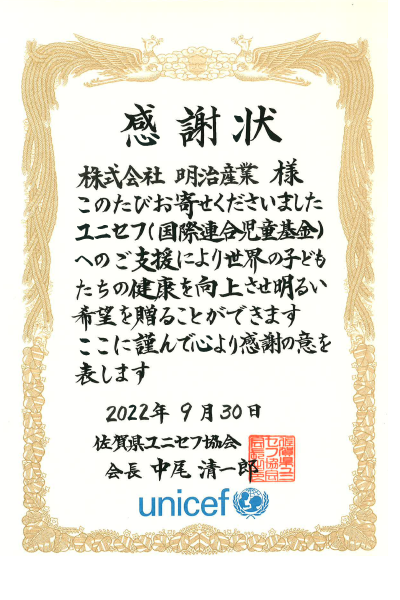 感謝状
株式会社 明治産業 様
このたびお寄せくださいました
ユニセフ(国際連合児童基金)
へのご支援により世界の子ども
たちの健康を向上させ明るい
希望を贈ることができます
ここに謹んで心より感謝の意を
表します
2022年 9月30日
佐賀県ユニセフ協会
会長 中尾 清一郎
unicef